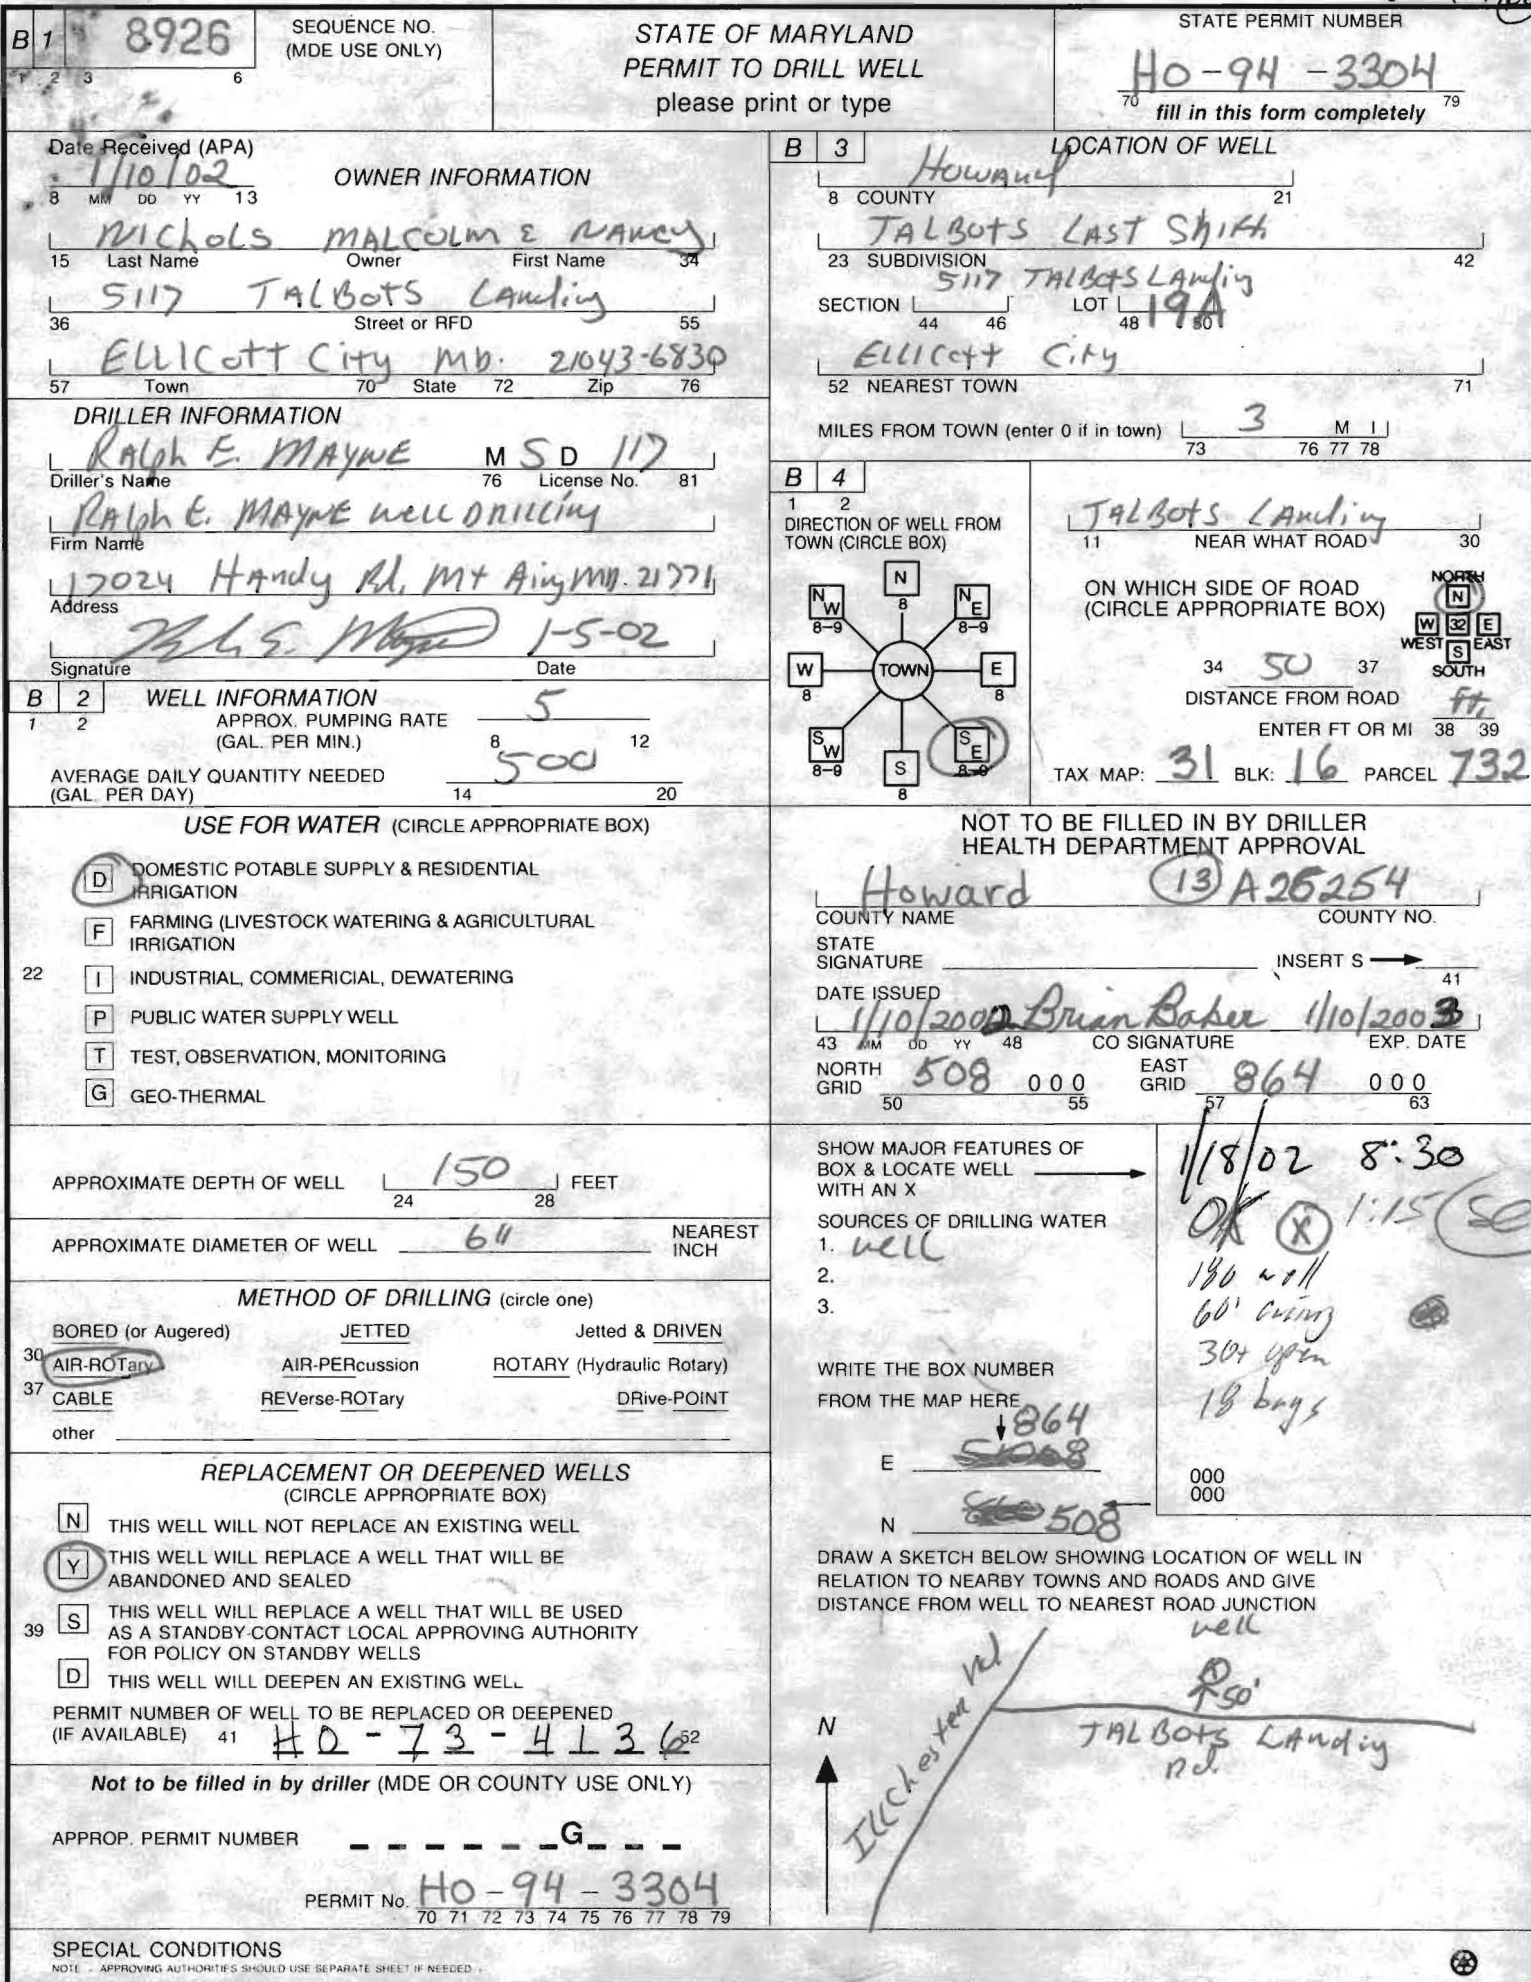 B 1 8926
1 2 3 6
SEQUENCE NO.
(MDE USE ONLY)
STATE OF MARYLAND
PERMIT TO DRILL WELL
please print or type
STATE PERMIT NUMBER
HO-94-3304
70 79
fill in this form completely
Date Received (APA)
1/10/02
8 MM DD YY 13
OWNER INFORMATION
NICHOLS MALCOLM & NANCY
15 Last Name Owner First Name 34
5117 TALBOTS LANding
36 Street or RFD 55
ELLICOTT City MD. 21043-6830
57 Town 70 State 72 Zip 76
DRILLER INFORMATION
RALph E. MAYNE M S D 117
Driller's Name 76 License No. 81
RALph E. MAYNE WELL DRILLing
Firm Name
17024 HAndy Rd. Mt Airy MD. 21771
Address
1-5-02
Signature Date
B 2 WELL INFORMATION
1 2
APPROX. PUMPING RATE 5
(GAL. PER MIN.) 8 12
AVERAGE DAILY QUANTITY NEEDED 500
(GAL. PER DAY) 14 20
USE FOR WATER (CIRCLE APPROPRIATE BOX)
D DOMESTIC POTABLE SUPPLY & RESIDENTIAL
IRRIGATION
F FARMING (LIVESTOCK WATERING & AGRICULTURAL
IRRIGATION
22 I INDUSTRIAL, COMMERICIAL, DEWATERING
P PUBLIC WATER SUPPLY WELL
T TEST, OBSERVATION, MONITORING
G GEO-THERMAL
APPROXIMATE DEPTH OF WELL 150 FEET
24 28
APPROXIMATE DIAMETER OF WELL 6" NEAREST
INCH
METHOD OF DRILLING (circle one)
BORED (or Augered) JETTED Jetted & DRIVEN
30 AIR-ROTary AIR-PERcussion ROTARY (Hydraulic Rotary)
37 CABLE REVerse-ROTary DRive-POINT
other
REPLACEMENT OR DEEPENED WELLS
(CIRCLE APPROPRIATE BOX)
N THIS WELL WILL NOT REPLACE AN EXISTING WELL
Y THIS WELL WILL REPLACE A WELL THAT WILL BE
ABANDONED AND SEALED
39 S THIS WELL WILL REPLACE A WELL THAT WILL BE USED
AS A STANDBY-CONTACT LOCAL APPROVING AUTHORITY
FOR POLICY ON STANDBY WELLS
D THIS WELL WILL DEEPEN AN EXISTING WELL
PERMIT NUMBER OF WELL TO BE REPLACED OR DEEPENED
(IF AVAILABLE) 41 HO-73-4136 52
Not to be filled in by driller (MDE OR COUNTY USE ONLY)
APPROP. PERMIT NUMBER G
PERMIT No. HO-94-3304
70 71 72 73 74 75 76 77 78 79
SPECIAL CONDITIONS
NOTE - APPROVING AUTHORITIES SHOULD USE SEPARATE SHEET IF NEEDED -
B 3 LOCATION OF WELL
Howard
8 COUNTY 21
TALBOTS LAST Shift
23 SUBDIVISION 42
5117 TALBOTS LAnding
SECTION LOT 19A
44 46 48 50
ELLICOTT City
52 NEAREST TOWN 71
MILES FROM TOWN (enter 0 if in town) 3 M I
73 76 77 78
B 4
1 2
DIRECTION OF WELL FROM
TOWN (CIRCLE BOX)
N
8
NW
8-9
NE
8-9
W
8
TOWN
E
8
SW
8-9
S
8
SE
8-9
TALBOTS LAnding
11 NEAR WHAT ROAD 30
ON WHICH SIDE OF ROAD
(CIRCLE APPROPRIATE BOX)
NORTH
N
W 32 E
WEST EAST
S
SOUTH
34 50 37
DISTANCE FROM ROAD
ENTER FT OR MI ft.
38 39
TAX MAP: 31 BLK: 16 PARCEL 732
NOT TO BE FILLED IN BY DRILLER
HEALTH DEPARTMENT APPROVAL
Howard 13 A26254
COUNTY NAME COUNTY NO.
STATE
SIGNATURE INSERT S
41
DATE ISSUED
1/10/2002 Brian Baker 1/10/2003
43 MM DD YY 48 CO SIGNATURE EXP. DATE
NORTH GRID 508 000 EAST GRID 864 000
50 55 57 63
SHOW MAJOR FEATURES OF
BOX & LOCATE WELL
WITH AN X
SOURCES OF DRILLING WATER
1. well
2.
3.
WRITE THE BOX NUMBER
FROM THE MAP HERE
864
E
N 508
1/18/02 8:30
OK X 1:15
180 well
60' casing
30+ open
18 bags
000
000
DRAW A SKETCH BELOW SHOWING LOCATION OF WELL IN
RELATION TO NEARBY TOWNS AND ROADS AND GIVE
DISTANCE FROM WELL TO NEAREST ROAD JUNCTION
well
50'
TALBOTS LAnding
Rd.
N
ILLChester Rd